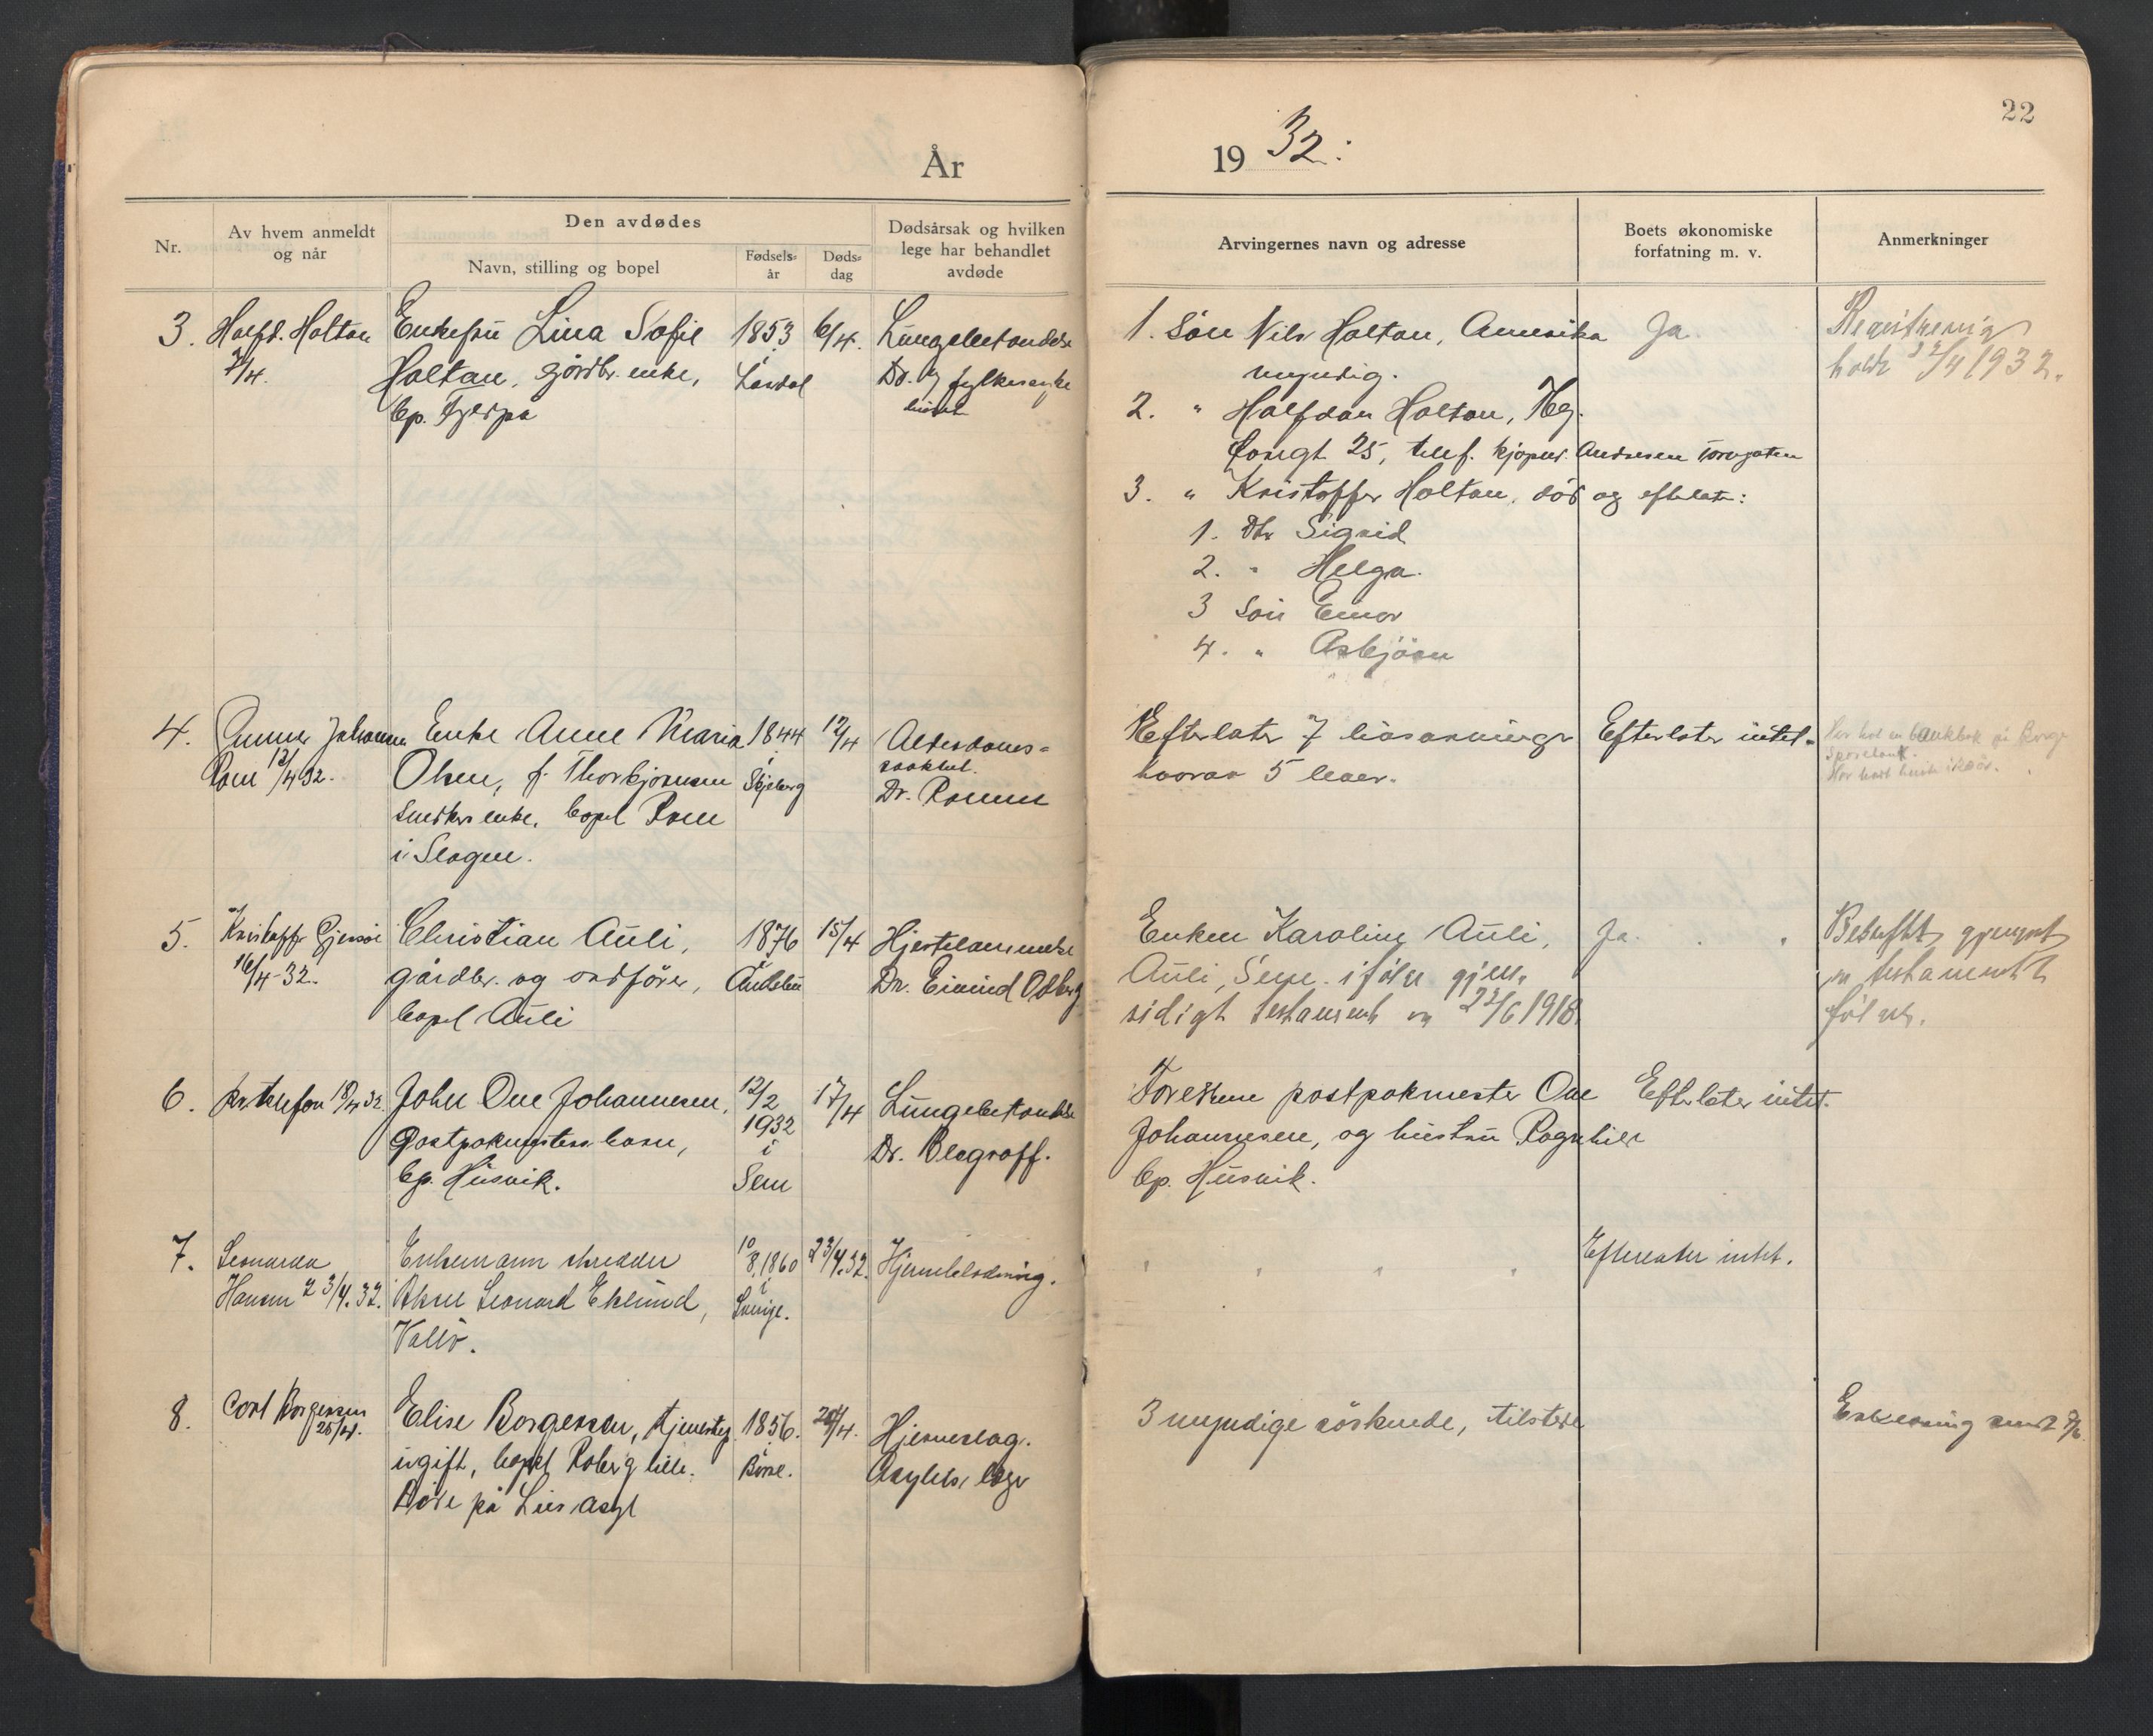 22
År 1932.
Nr.
Av hvem anmeldt
og når
Den avdødes
Navn, stilling og bopel
Fødsels-
år
Døds-
dag
Dødsårsak og hvilken
lege har behandlet
avdøde
Arvingernes navn og adresse
Boets økonomiske
forfatning m. v.
Anmerkninger
3. Halfd. Holtan
7/4.
Enkefru Lina Sofie
Holtan, gårdbr. enke,
bp.
1853
i
Lardal
6/4.
Lungebetændelse
Dr. fylkessyke
huset
1. Søn Nils Holtan, Amerika
myndig.
2. " Halfdan Holtan, Tbg.
25, telef. kjøpm. Andersen Torvgaten
3. " Kristoffer Holtan, død og efterlater:
1. Dtr Sigrid
2. " Helga.
3 Søn Einar
4. " Asbjörn
Ja.
Registrering
holdt 22/4 1932.
4. Gunnar Johansen
Roen 12/4-32.
Enke Anne Maria
Olsen, f. Thorbjørnsen
snekkerenke, bopel Roen
i Slagen.
1844
i
Skjeberg
12/4
Alderdoms-
svakhet.
Dr. Romm
Efterlater 7 livsarvinger
hvorav 5 lever.
Efterlater intet.
Har hat en bankbok på
Sparebank.
5. Kristoffer Gjersøe
16/4-32.
Christian Auli,
gårdbr. og ordfører,
bopel Auli
1876
i
Andebu
15/4
Hjertelammelse
Dr. Eivind Odberg
Enken Karoline Auli,
Auli, Sem. ifølge gjen-
sidigt testament av 22/6 1918.
Ja.
Bekreftet gjenpart
av testamentet
følger.
6. pr. telefon 18/4 32.
John One Johannesen,
postpakmesters barn,
bp. Husvik.
12/2
1932
i
Sem
17/4
Lungebetændelse
Dr. Blegraff.
Foreldrene postpakmester One
Johannesen, og hustru Ragnhild
bp. Husvik.
Efterlater intet.
7. Leonarda
Hansen 23/4.32.
Enkemann skredder
Aksel Leonard Eklund,
Vallø.
10/8.1860
i
Sverige.
23/4.32.
Hjerneblødning.
" " " "
Efterlater intet.
8. Carl Borgersen
25/4.
Elise Borgersen, tjenestep.
ugift, bopel Roberg lille.
Døde på Lier asyl
1856.
i
Borre.
24/4.
Hjerneslag.
Asylets læge
3 myndige søskende, tilstede
Erklæring sendt